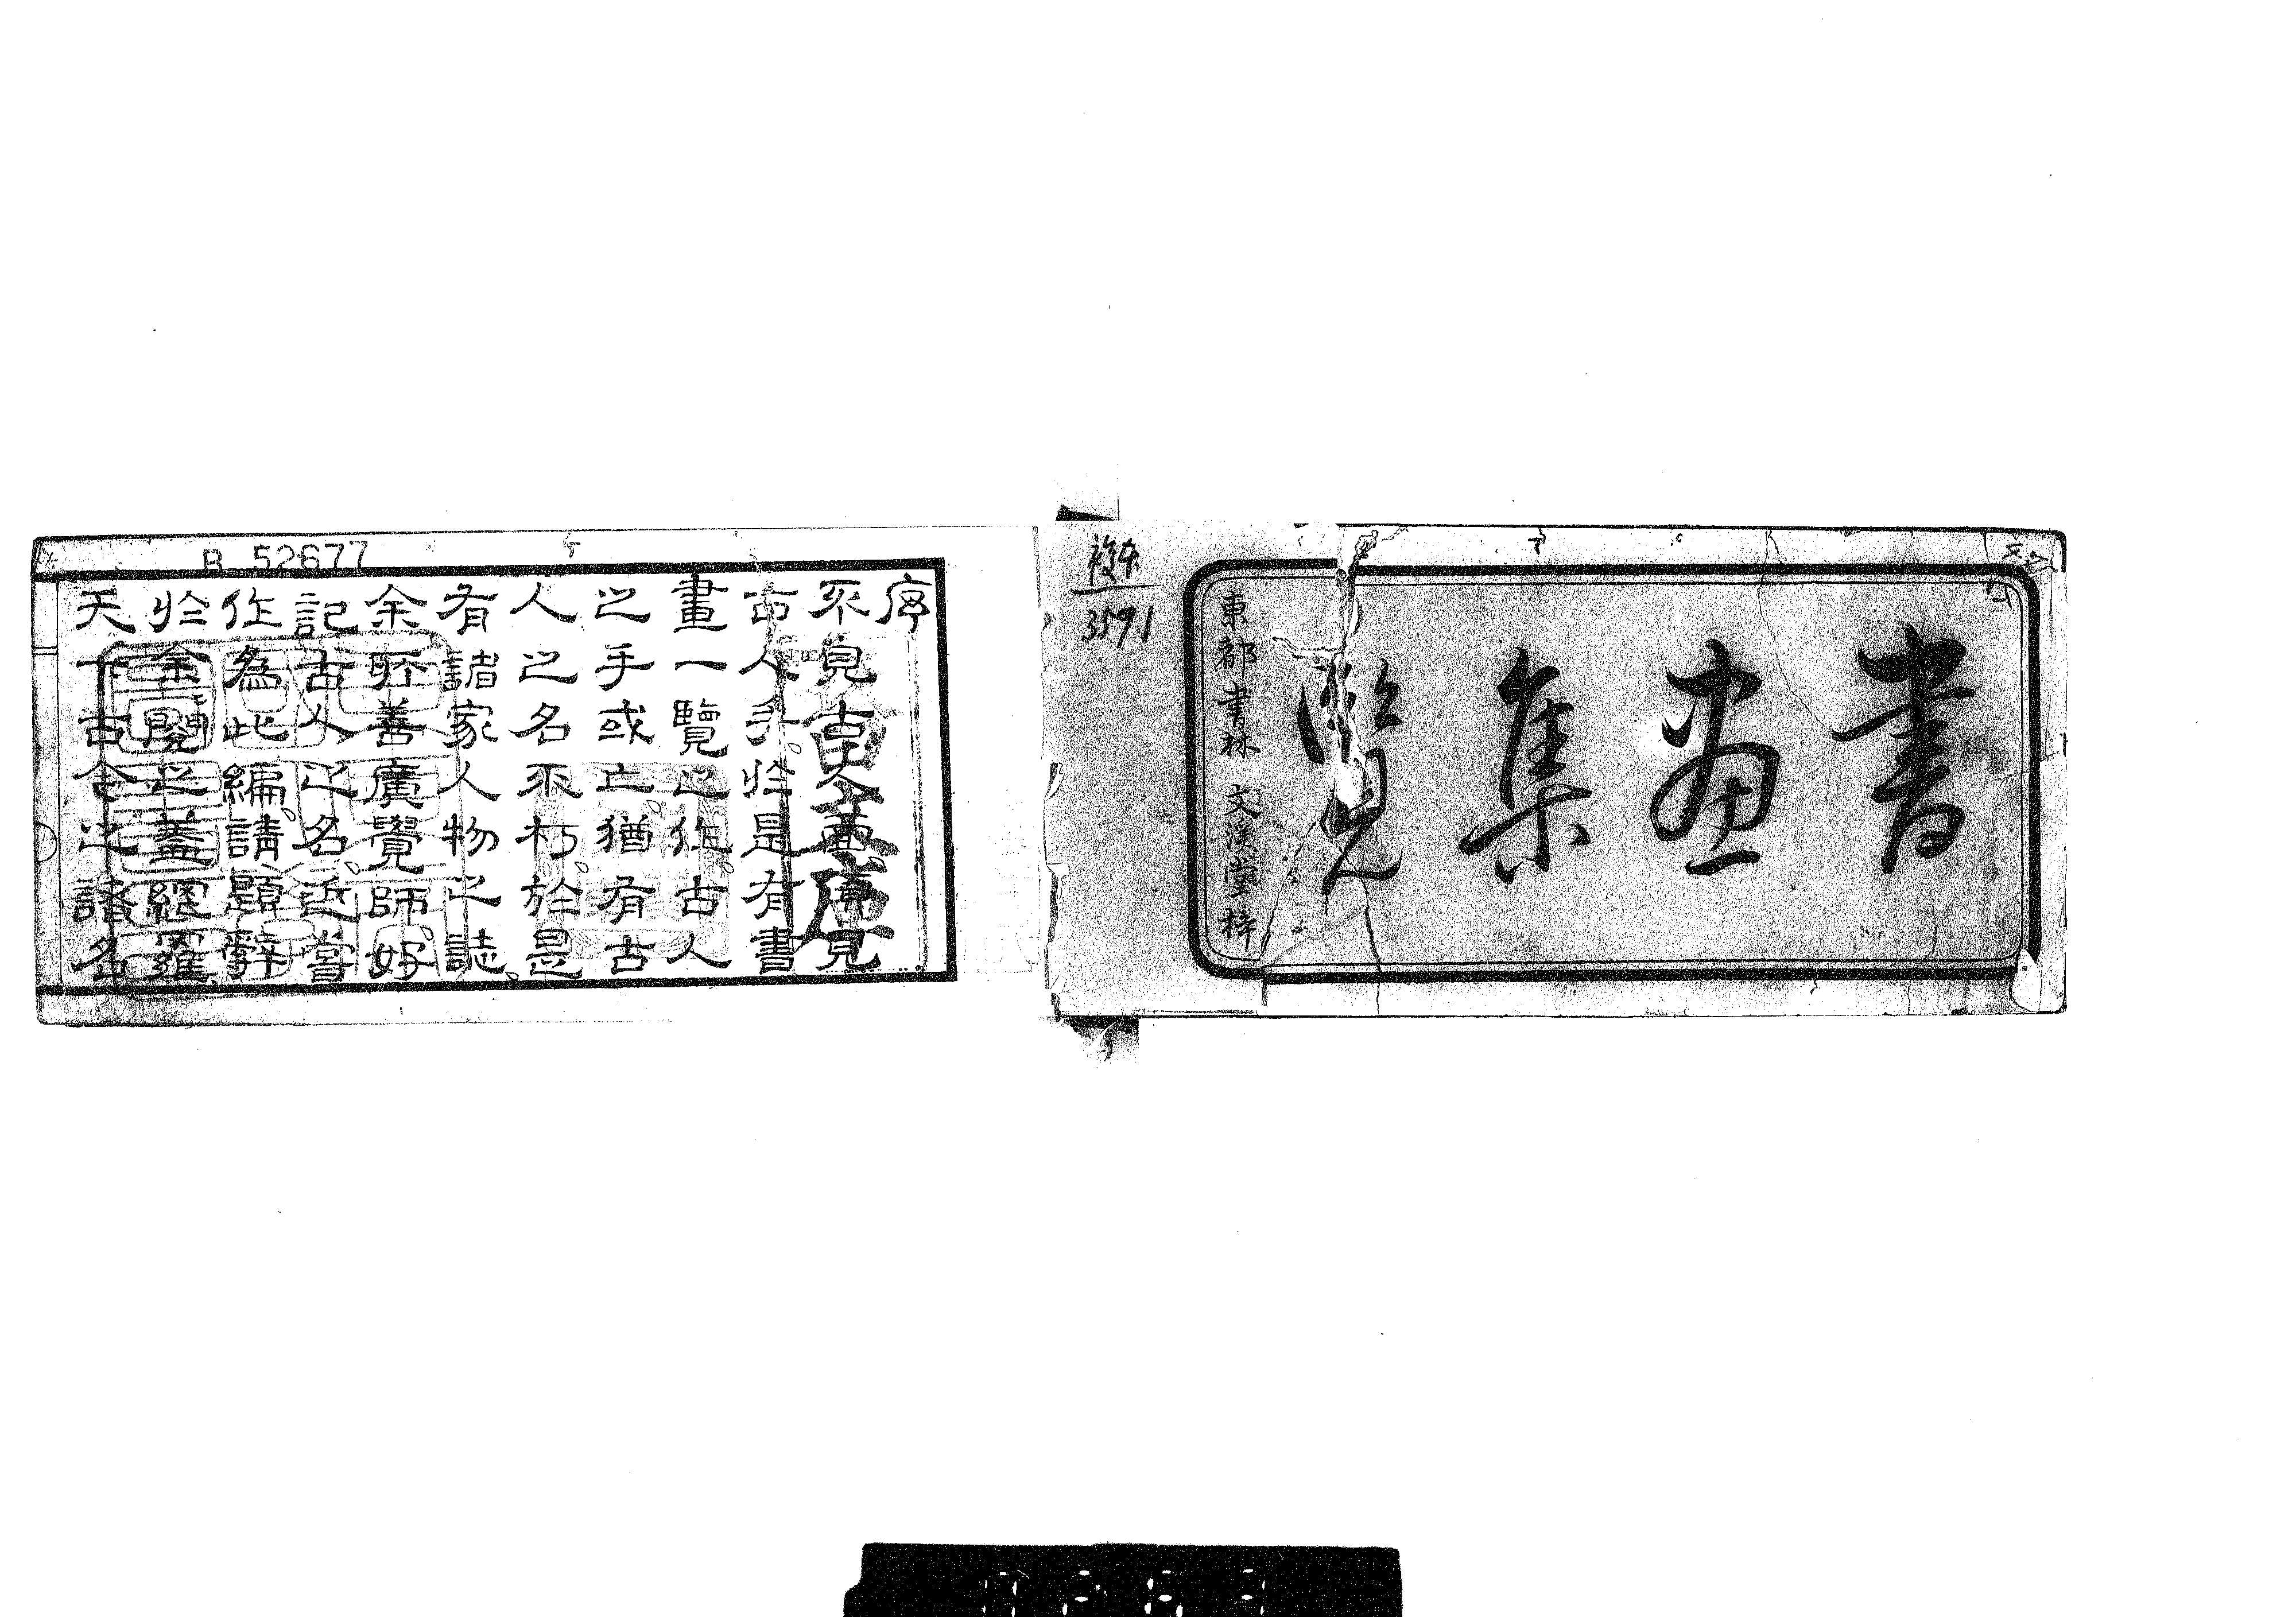 書画集覧
東都書林 文溪堂梓
複本
3591
B 52677
序
不見古人 見
古人手於是有書
畫一覽之作古人
之手或亡猶有古
人之名不朽於是
有諸家人物之誌
余所善廣覺師好
記古人之名近嘗
作為此編請題辭
於余閱之蓋 羅
天下古今之諸名